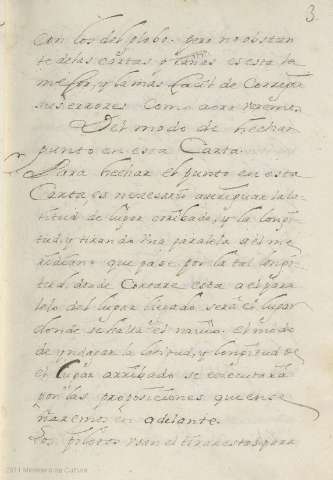 3
con los del globo, pero no obstan
te de las cartas planas es esta la
mejor, y la mas facil de Corregir
sus errores Como aora veremos.
Del modo de hechar
punto en esta Carta.
Para hechar el punto en esta
Carta es necesario averiguar la la
titud de lugar arribado, y la longi
tud, y tirando una paralela a el me
ridiano que pase por la tal longi
tud, donde Cortare esta a el para
lelo del lugar llegado será el lugar
donde se halla el navio. el modo
de indagar la latitud, y longitud de
el Lugar arribado se executará
por las proposiciones que ense
ñaremos en adelante.
Los pilotos usan el tirar esta para
2011 Ministerio de Cultura